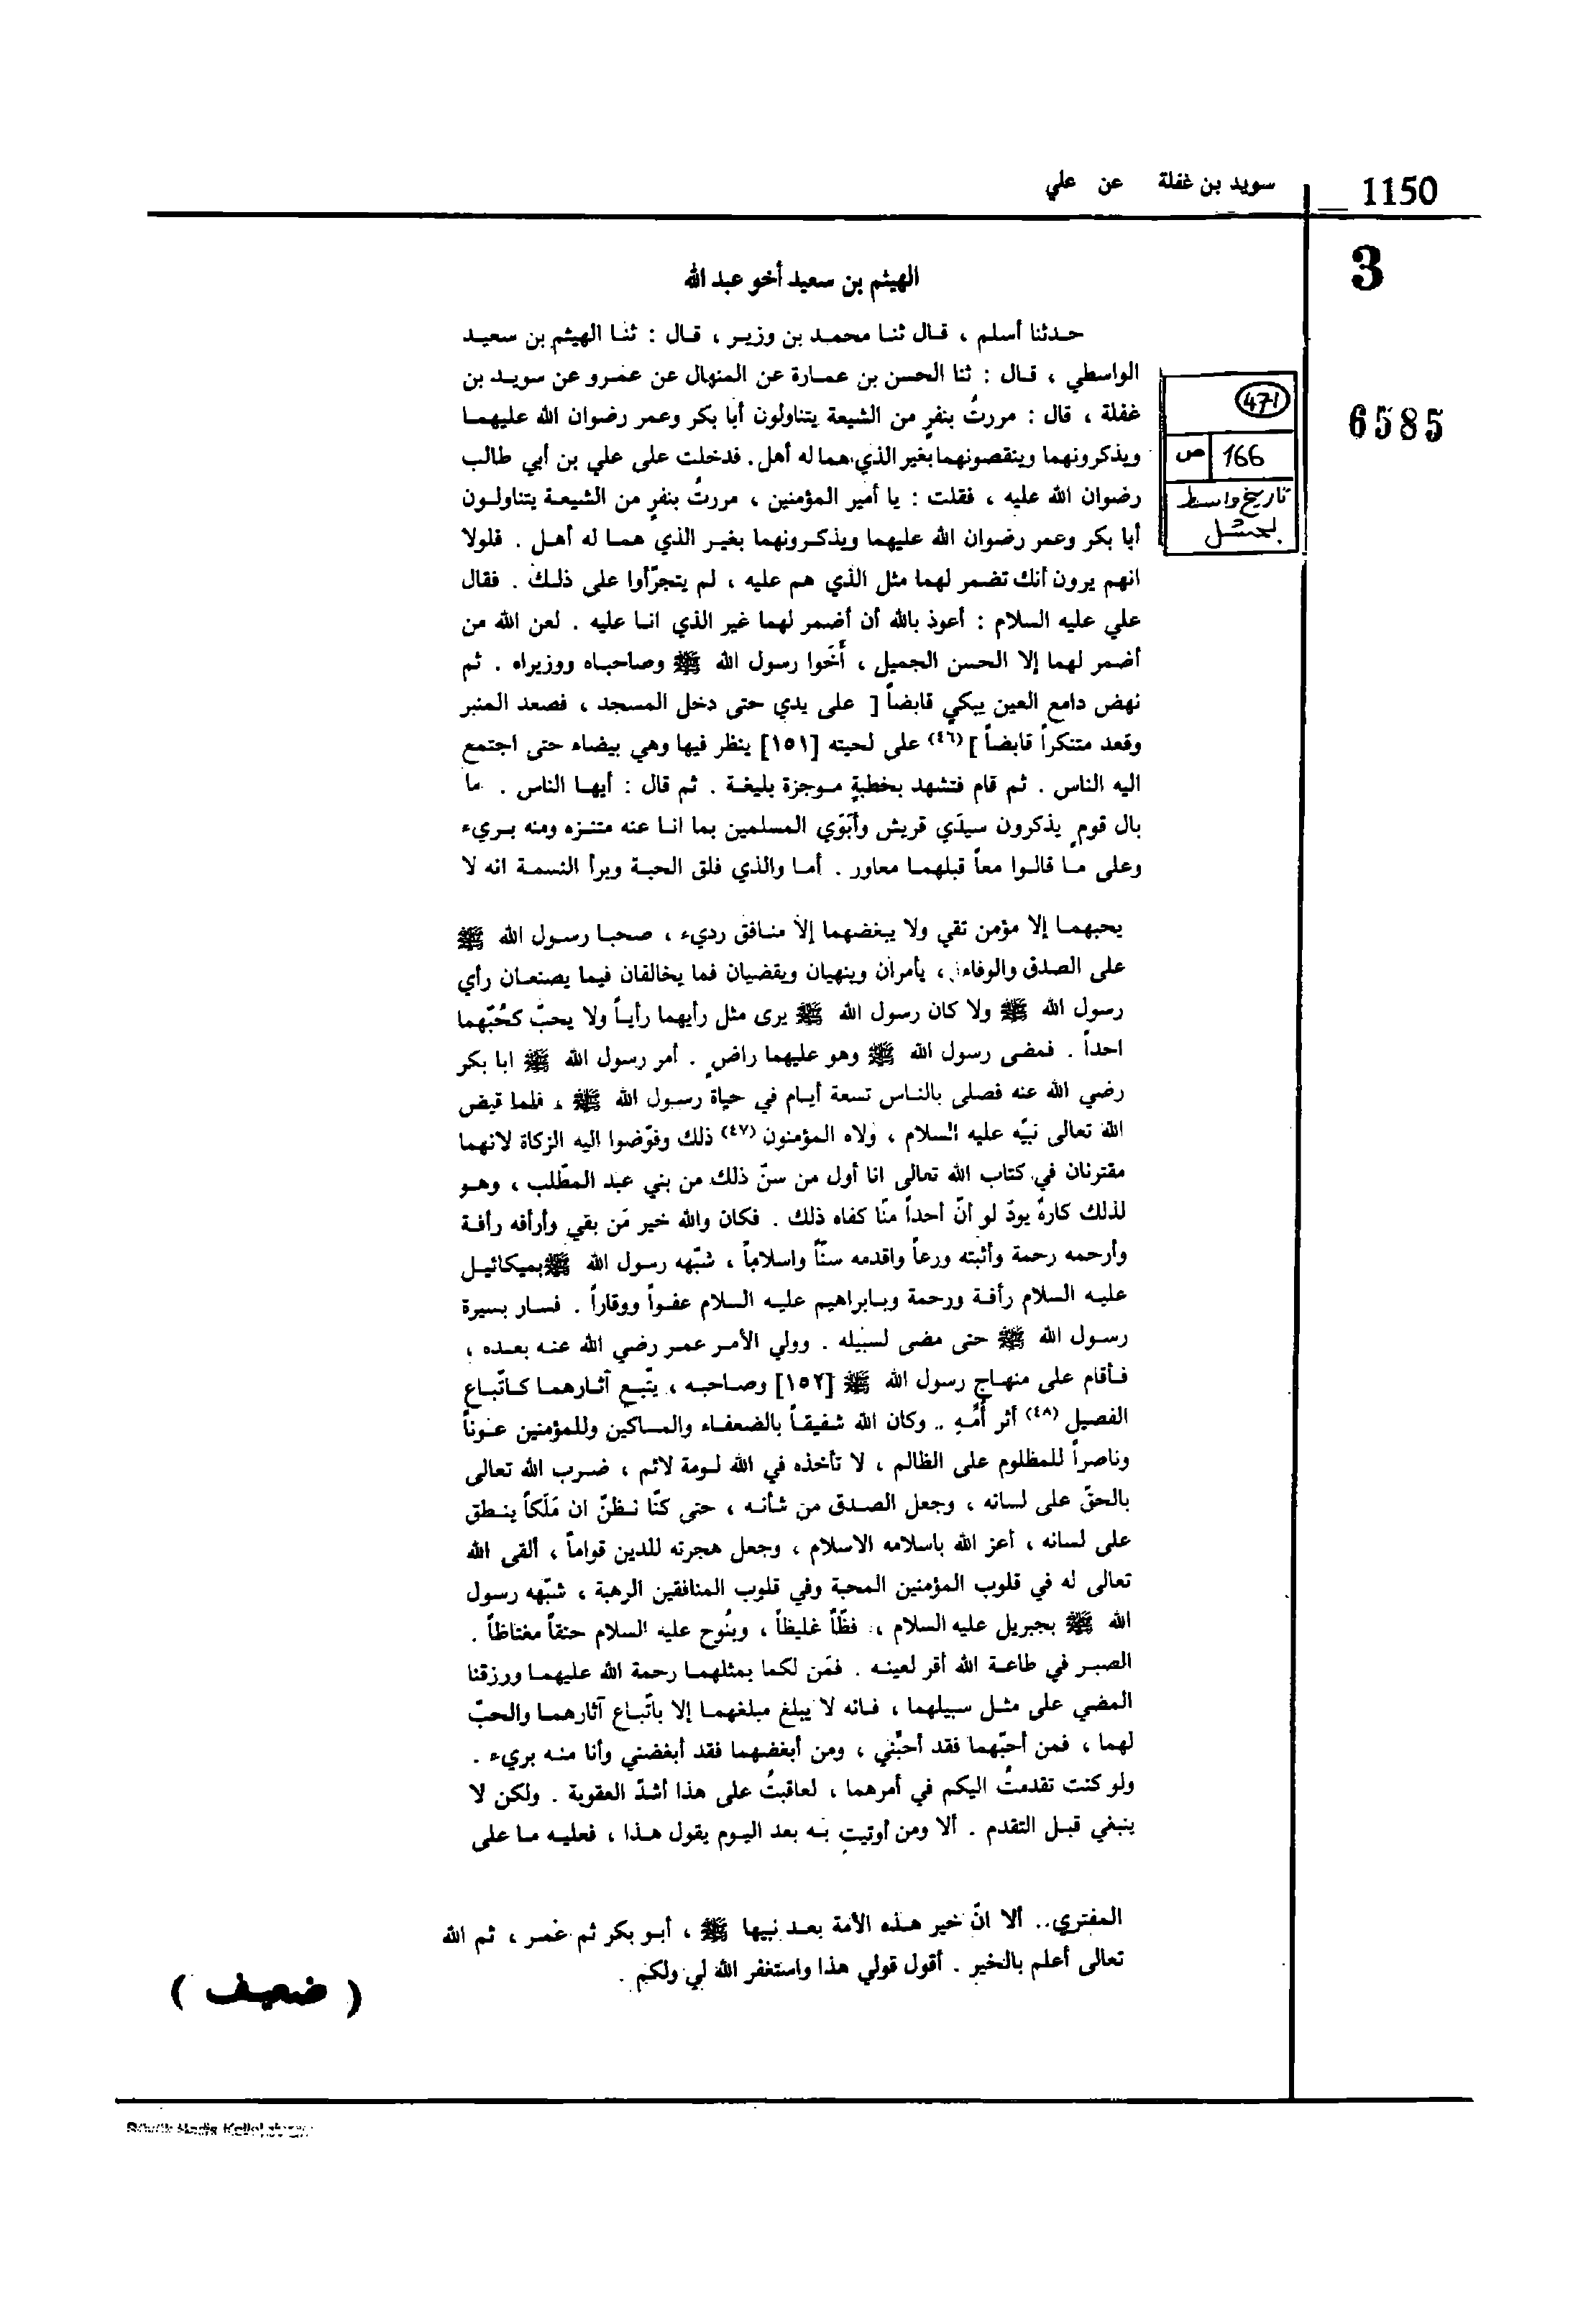 1150
سويد بن غفلة عن علي
3
6585
471
ص 166
تاريخ واسط
لبحشل
الهيثم بن سعيد أخو عبد الله
حدثنا أسلم ، قال ثنا محمد بن وزير ، قال : ثنا الهيثم بن سعيد
الواسطي ، قال : ثنا الحسن بن عمارة عن المنهال عن عمرو عن سويد بن
غفلة ، قال : مررتُ بنفرٍ من الشيعة يتناولون أبا بكر وعمر رضوان الله عليهما
ويذكرونهما وينقصونهما بغير الذي هما له أهل . فدخلت على علي بن أبي طالب
رضوان الله عليه ، فقلت : يا أمير المؤمنين ، مررتُ بنفرٍ من الشيعة يتناولون
أبا بكر وعمر رضوان الله عليهما ويذكرونهما بغير الذي هما له أهل . فلولا
انهم يرون أنك تضمر لهما مثل الذي هم عليه ، لم يتجرّأوا على ذلك . فقال
علي عليه السلام : أعوذ بالله أن أضمر لهما غير الذي انا عليه . لعن الله من
أضمر لهما إلا الحسن الجميل ، أَخَوا رسول الله ﷺ وصاحباه ووزيراه . ثم
نهض دامع العين يبكي قابضاً [ على يدي حتى دخل المسجد ، فصعد المنبر
وقعد متنكراً قابضاً ] (٤٦) على لحيته [١٥١] ينظر فيها وهي بيضاء حتى اجتمع
اليه الناس . ثم قام فتشهد بخطبةٍ موجزة بليغة . ثم قال : أيها الناس . ما
بال قومٍ يذكرون سيدَي قريش وأبَوَي المسلمين بما انا عنه متنزه ومنه بريء
وعلى ما قالوا معاً قبلهما معاور . أما والذي فلق الحبة وبرأ النسمة انه لا
يحبهما إلا مؤمن تقي ولا يبغضهما إلا منافق رديء ، صحبا رسول الله ﷺ
على الصدق والوفاء ، يأمران وينهيان ويقضيان فما يخالفان فيما يصنعان رأي
رسول الله ﷺ ولا كان رسول الله ﷺ يرى مثل رأيهما رأياً ولا يحبّ كحُبّهما
احداً . فمضى رسول الله ﷺ وهو عليهما راضٍ . أمر رسول الله ﷺ ابا بكر
رضي الله عنه فصلى بالناس تسعة أيام في حياة رسول الله ﷺ ، فلما قبض
الله تعالى نبيّه عليه السلام ، ولاه المؤمنون (٤٧) ذلك وفوّضوا اليه الزكاة لانهما
مقترنان في كتاب الله تعالى انا أول من سنّ ذلك من بني عبد المطّلب ، وهو
لذلك كارهٌ يودّ لو أنّ أحداً منّا كفاه ذلك . فكان والله خير مَن بقي وأرأفه رأفة
وأرحمه رحمة وأثبته ورعاً واقدمه سنّاً واسلاماً ، شبّهه رسول الله ﷺ بميكائيل
عليه السلام رأفة ورحمة وبابراهيم عليه السلام عفواً ووقاراً . فسار بسيرة
رسول الله ﷺ حتى مضى لسبيله . وولي الأمر عمر رضي الله عنه بعده ،
فأقام على منهاج رسول الله ﷺ [١٥٢] وصاحبه ، يتّبع آثارهما كاتّباع
الفصيل (٤٨) أثر أُمّهِ .. وكان الله شفيقاً بالضعفاء والمساكين وللمؤمنين عوناً
وناصراً للمظلوم على الظالم ، لا تأخذه في الله لومة لائم ، ضرب الله تعالى
بالحقّ على لسانه ، وجعل الصدق من شأنه ، حتى كنّا نظنّ ان مَلَكاً ينطق
على لسانه ، أعز الله باسلامه الاسلام ، وجعل هجرته للدين قواماً ، ألقى الله
تعالى له في قلوب المؤمنين المحبة وفي قلوب المنافقين الرهبة ، شبّهه رسول
الله ﷺ بجبريل عليه السلام ، فظّاً غليظاً ، وبنُوح عليه السلام حنقاً مغتاظاً .
الصبر في طاعة الله أقر لعينه . فمَن لكما بمثلهما رحمة الله عليهما ورزقنا
المضي على مثل سبيلهما ، فانه لا يبلغ مبلغهما إلا باتّباع آثارهما والحبّ
لهما ، فمن أحبّهما فقد أحبّني ، ومن أبغضهما فقد أبغضني وأنا منه بريء .
ولو كنت تقدمتُ اليكم في أمرهما ، لعاقبتُ على هذا أشدّ العقوبة . ولكن لا
ينبغي قبل التقدم . ألا ومن أوتيت به بعد اليوم يقول هذا ، فعليه ما على
المفتري .. ألا انّ خير هذه الأمة بعد نبيها ﷺ ، أبو بكر ثم عمر ، ثم الله
تعالى أعلم بالخير . أقول قولي هذا واستغفر الله لي ولكم .
( ضعيف )